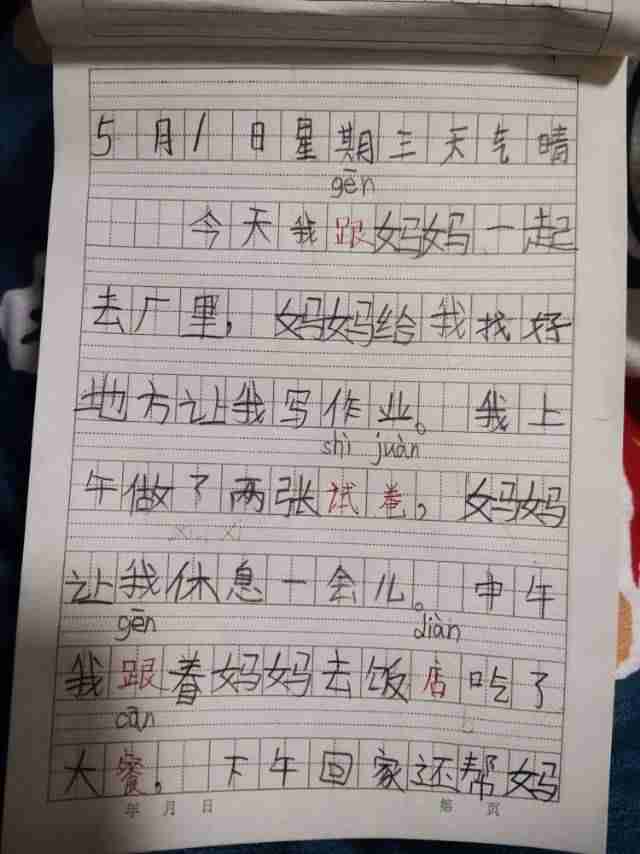 5月1日星期三天气晴
gēn
今天我跟妈妈一起
去厂里，妈妈给我找好
地方让我写作业。我上
shì juàn
午做了两张试卷，妈妈
让我休息一会儿。中午
gēn diàn
我跟着妈妈去饭店吃了
cān
大餐。下午回家还帮妈
年 月 日 第 页